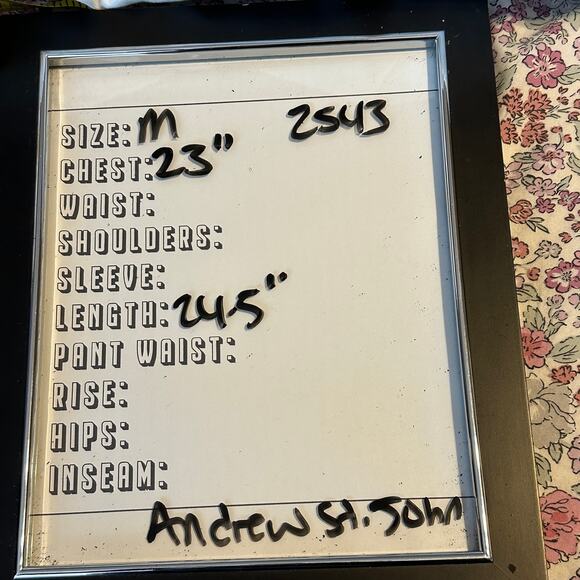 SIZE: M 2543
CHEST: 23"
WAIST:
SHOULDERS:
SLEEVE:
LENGTH: 24.5"
PANT WAIST:
RISE:
HIPS:
INSEAM:
Andrew St. John